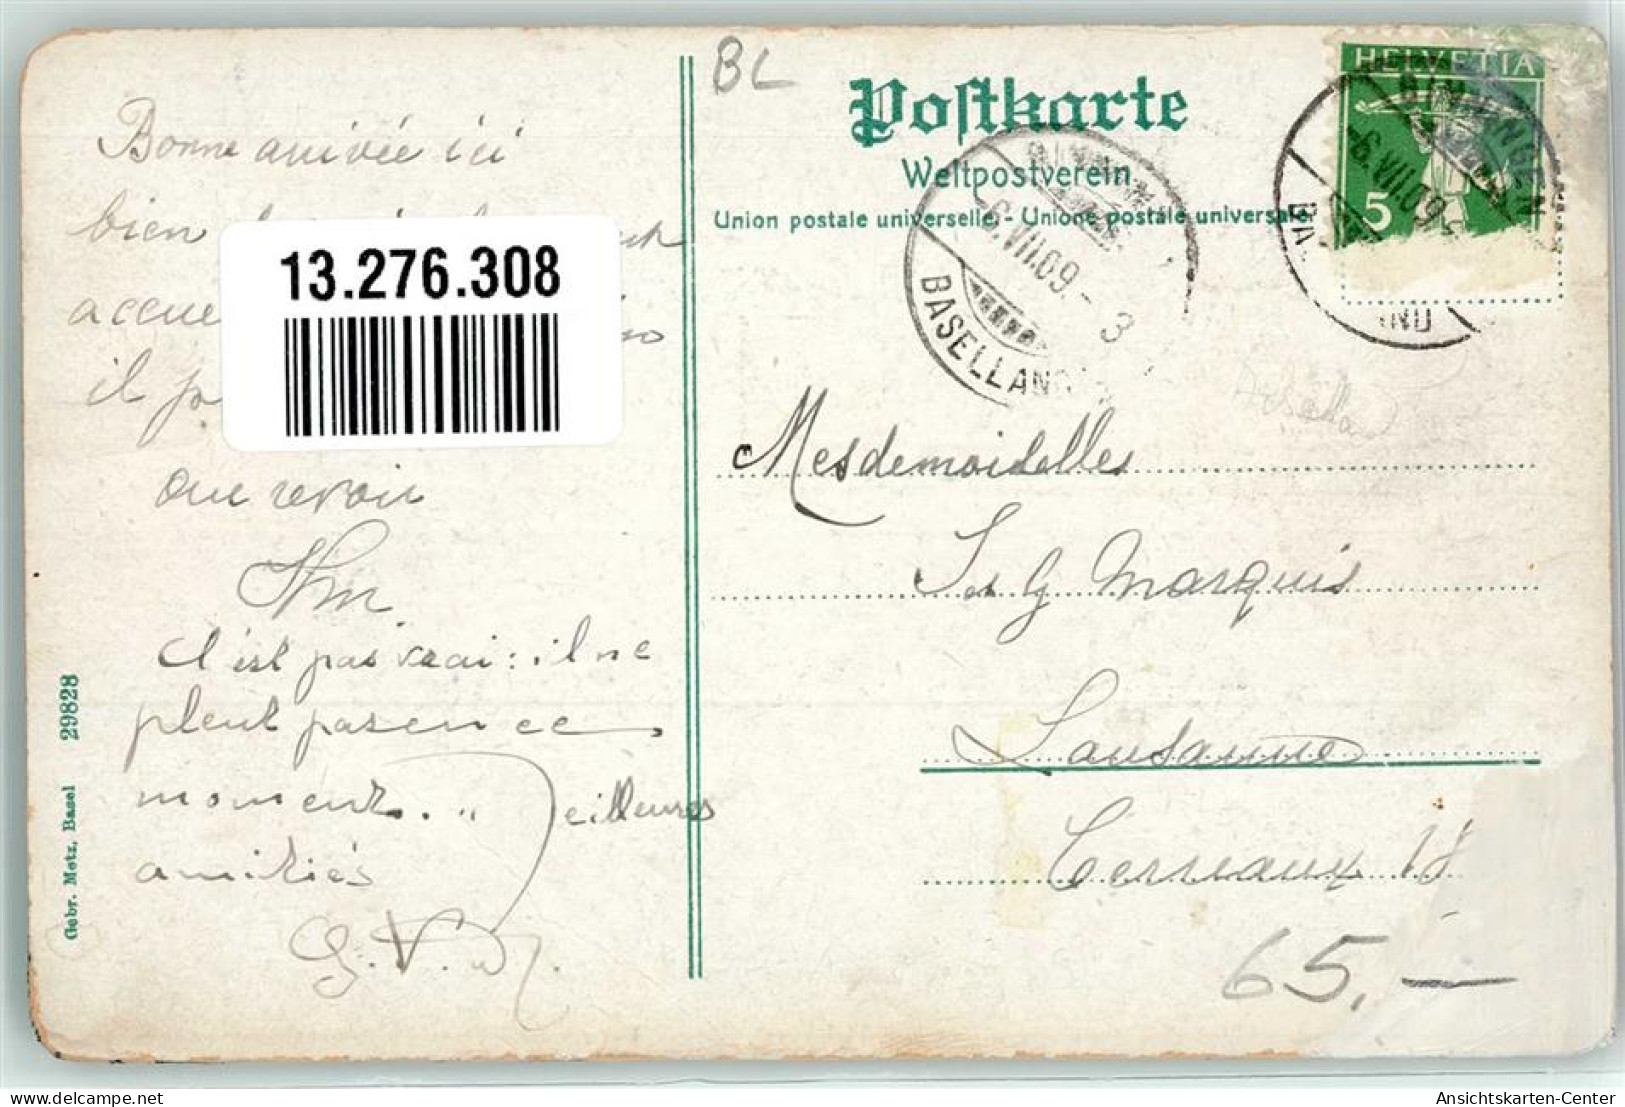 BL
Postkarte
Weltpostverein
Union postale universelle. - Unione postale universale.
HELVETIA
5
BINNINGEN
-6.VII.09.
-6.VII.09.-3
BASELLAND
Bonne arrivée ici
bien
accue
il p
13.276.308
au revoir
c'est pas vrai: il ne
pleut pas en ce
moment. Meilleures
amitiés
Mesdemoiselles
J et G Marquis
Lausanne
Terreaux 18
65,—
Gebr. Metz, Basel 29828
delcampe.net
Ansichtskarten-Center